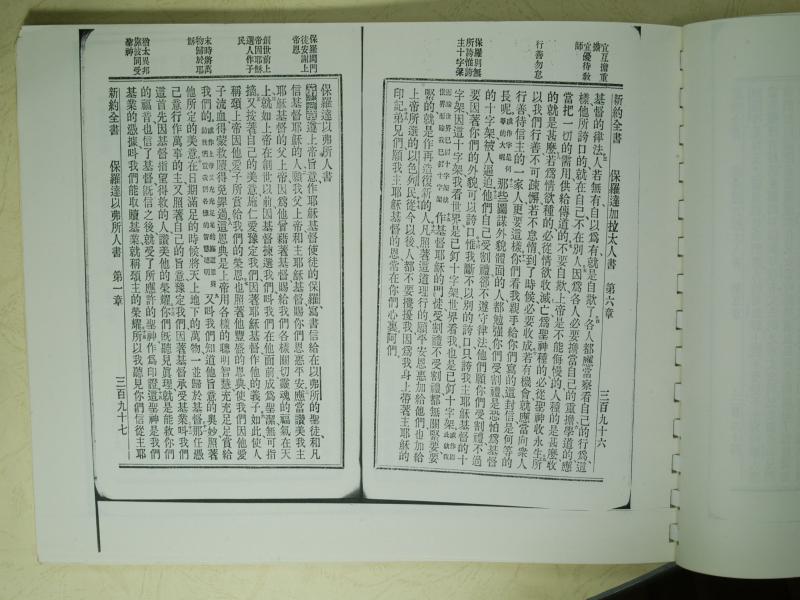 宜互擔重擔
宜優待教師
行善勿怠
保羅別無所誇惟誇主十字架
新約全書 保羅達加拉太人書 第六章 三百九十六
基督的律法。人若無有、自以爲有、就是自欺了。各人都應當察看自己的行爲、這
樣他所誇口的、就在自己不在別人、因爲各人必要擔當自己的重擔。學道的、應
當把一切的需用供給傳道的。不要自欺、上帝是不能侮慢的。人種的是甚麽收
的就是甚麽。若爲情欲種的、必從情欲收滅亡、爲聖神種的、必從聖神收永生。所
以我們行善不可疎懈、若不怠惰到了時候必要收成。若有機會就應當向衆人
行善、待信主的一家人更要這樣。你們看我親手給你們寫的這封信是何等的
長呢。或作字是何等的大呢 那些圖謀外貌體面的人、都勉强你們受割禮、是恐怕爲基督
的十字架被人逼迫。他們自己受割禮、卻不遵守律法、他們願你們受割禮、不過
要因著你們的外貌可以誇口。惟我斷不以別的誇口、只誇我主耶穌基督的十
字架。因這十字架、我看世界是已釘十字架、世界看我、也是已釘十字架。
作基督耶穌的門徒受割禮不受割禮都無關緊要、要
緊的就是作再造復新的人。凡照著這道理行的、願平安恩惠加給他們、也加給
上帝所選的以色列民。從今以後、人都不要攪擾我、因爲我身上帶著主耶穌的
印記。弟兄們、願我主耶穌基督的恩常在你們心裏。阿們。
保羅問門徒安謝上帝恩
創世前上帝因耶穌選人作子民
末時將萬物歸於耶穌
猶太異邦
保羅達以弗所人書
遵上帝旨意、作耶穌基督使徒的保羅、寫書信給在以弗所的聖徒和凡
信基督耶穌的人。願我父上帝和主耶穌基督賜你們恩惠平安。應當讚美我主
耶穌基督的父上帝、因爲他曾藉著基督賜給我們各樣關切靈魂的福氣在天
上。就如上帝在創世以前因基督揀選我們、叫我們在他面前成爲聖潔無可指
摘。又按著自己的美意、施仁愛豫定我們因著耶穌基督作他的義子。如此使人
稱頌上帝因他愛子所賞給我們的榮恩。也照著他豐盛的恩典、使我們因他愛
子流血得蒙救贖、得免罪過。這恩典是上帝用各樣的聰明智慧、充充足足賞給
我們的。 又叫我們知道他旨意的奥妙、照著
他所定的美意、在日期滿足的時候、將天上地下的萬物、一並歸於基督。那任憑
己意行作萬事的主、又照著自己的旨意、豫定我們因著基督承受基業、叫我們
這首先因基督指望得救的人、讚美他的榮耀。你們旣聽見眞理、就是能救你們
的福音、也信了基督、旣信之後、就受了所應許的聖神作爲印證。這聖神是我們
基業的憑據、叫我們能取贖基業、就稱頌主的榮耀。所以我聽見你們信從主耶
新約全書 保羅達以弗所人書 第一章 三百九十七